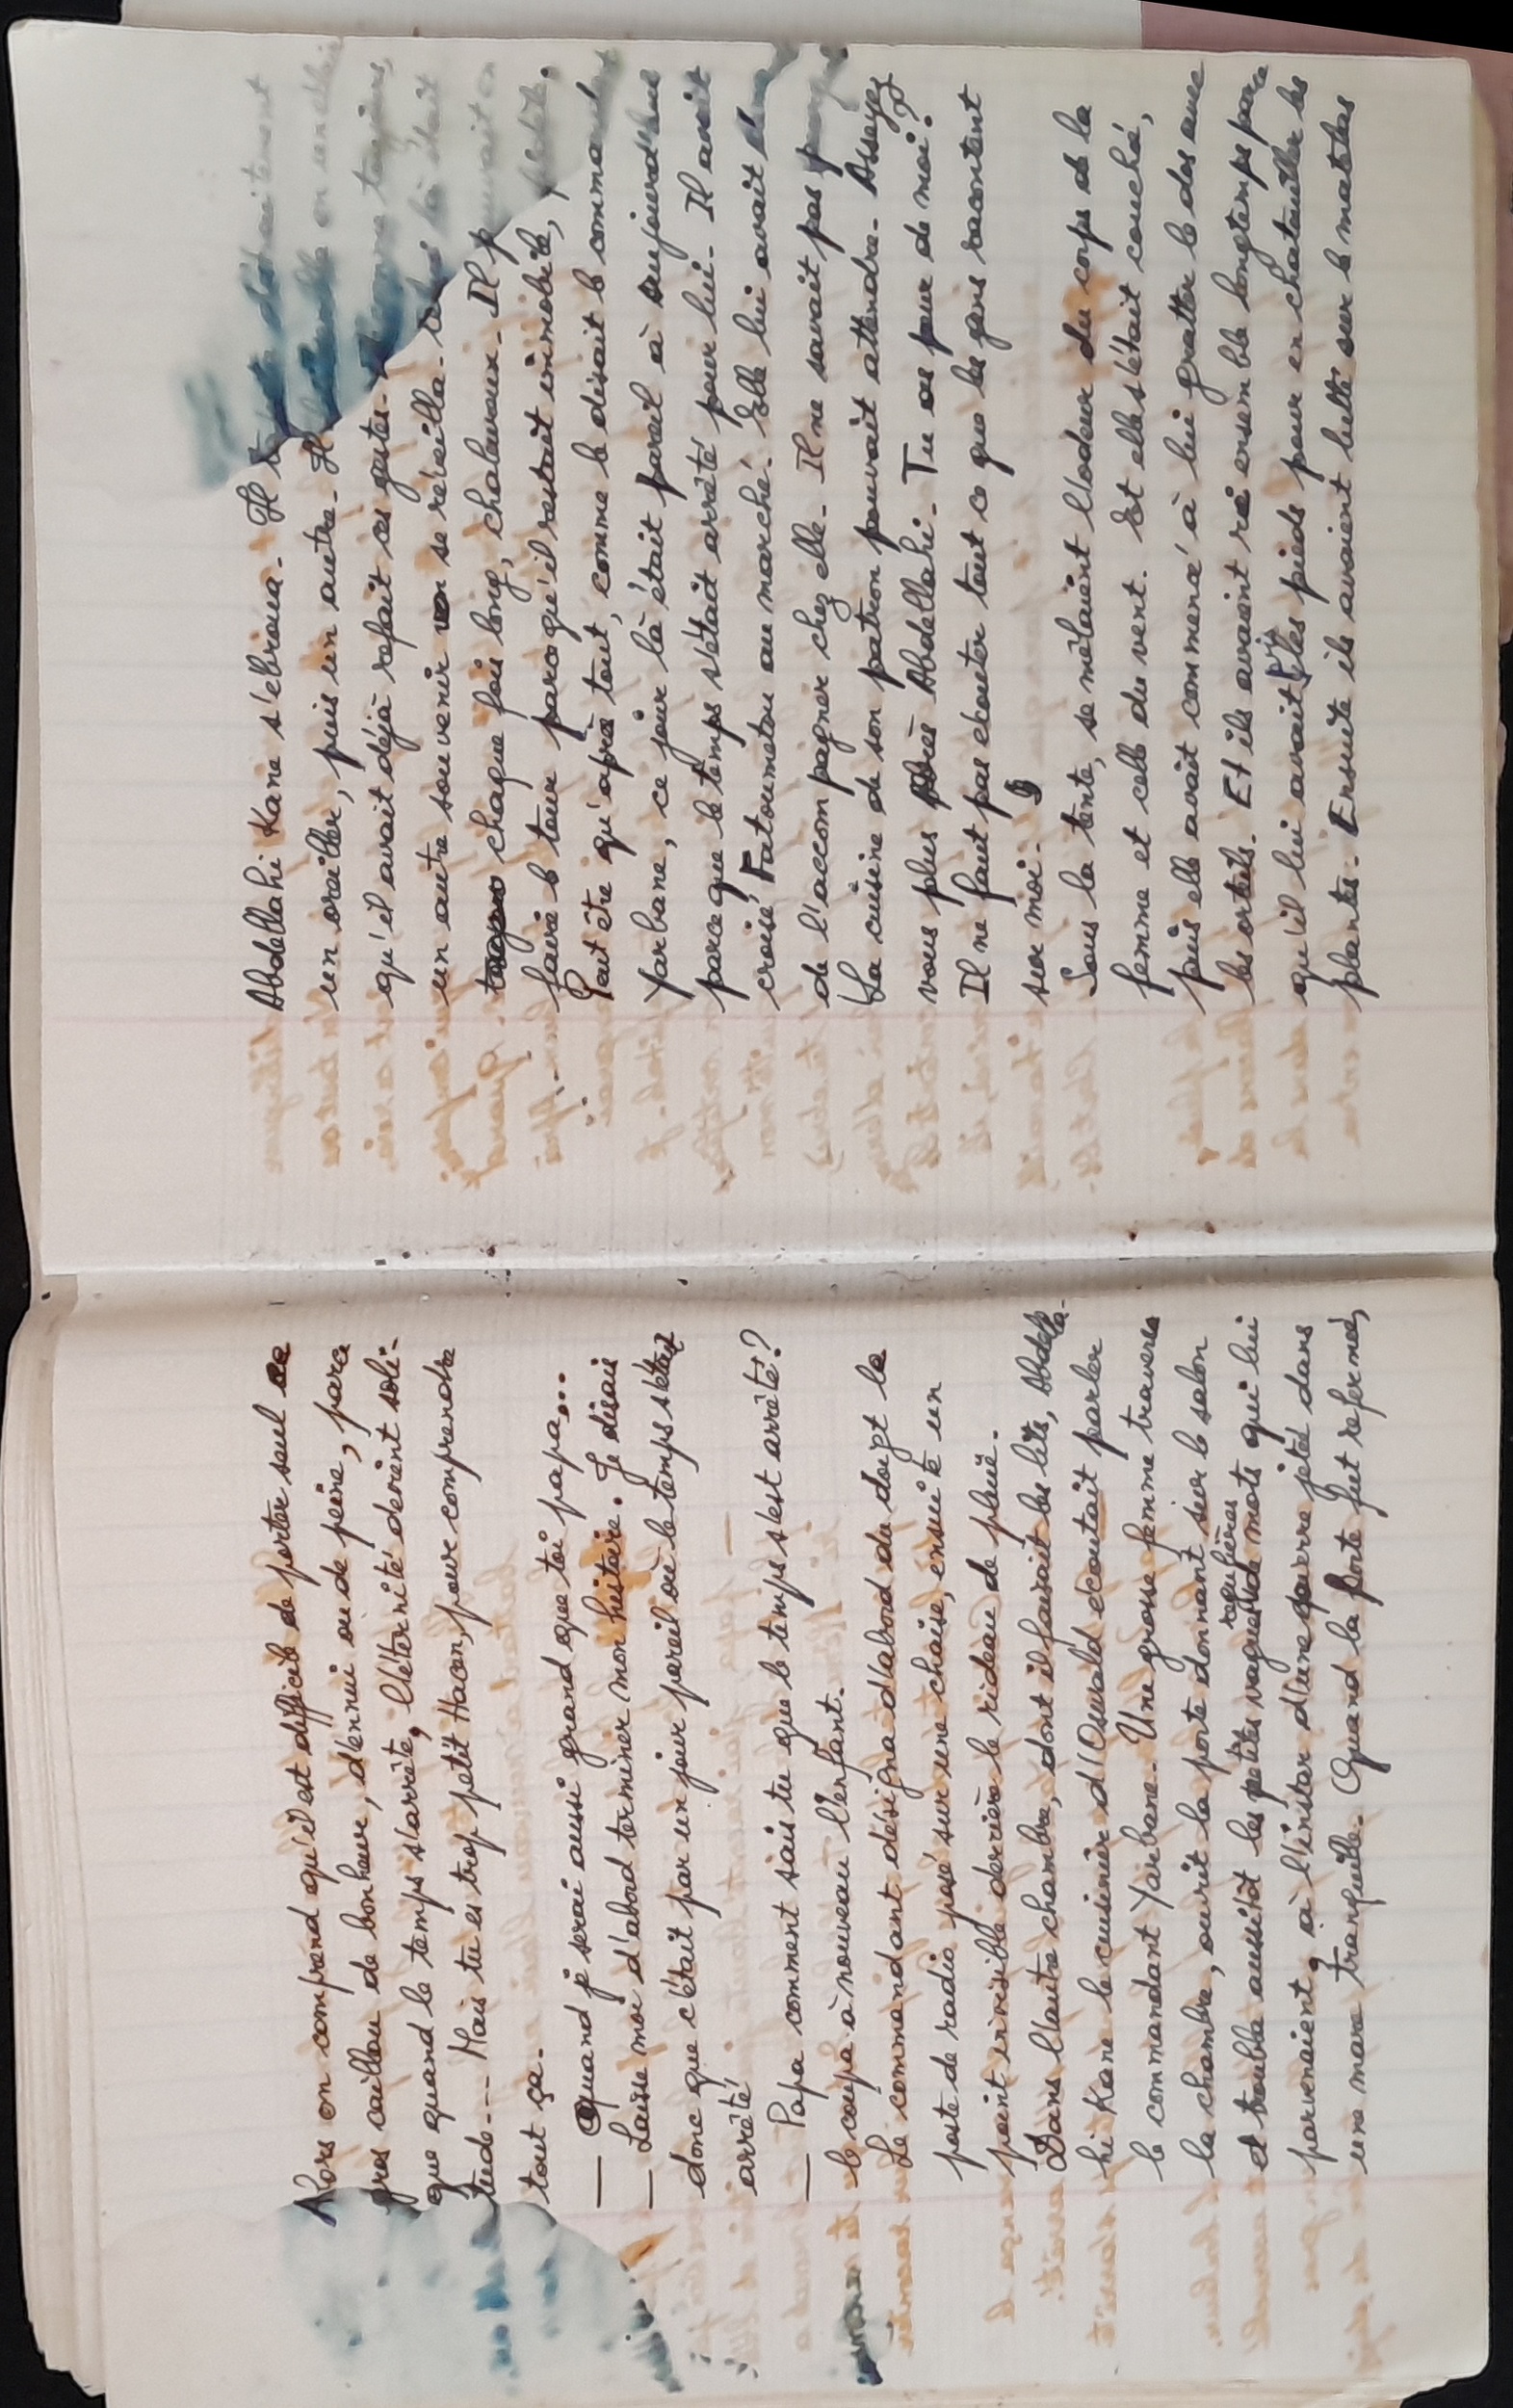 Alors on comprend qu'il est difficile de porter seul ce
gros caillou de bonheur, d'ennui ou de peine, parce
que quand le temps s'arrête, l'éternité devient soli-
tude--- Mais tu es trop petit Hacen, pour comprendre
tout ça.
— Quand je serai aussi grand que toi papa...
— Laisse moi d'abord terminer mon histoire. Je disais
donc que c'était par un jour pareil où le temps s'était
arrêté.
— Papa comment sais tu que le temps s'est arrêté ?
le coupa à nouveau l'enfant.
Le commandant désigna d'abord du doigt le
poste de radio posé sur une chaise, ensuite un
point invisible derrière le rideau de pluie.
Dans l'autre chambre, dont il faisait les lits, Abdella-
hi Kane le cuisinier d'Oswald écoutait parler
le commandant Yarbane. Une grosse femme traversa
la chambre, ouvrit la porte donnant sur le salon
et troubla aussitôt les petites vagues régulières de mots qui lui
parvenaient, à l'instar d'une pierre jetée dans
une mare tranquille. Quand la porte fut refermée,
Abdellahi Kane s'ebroua. Il
un oreiller, puis un autre. Il
qu'il avait déjà refait ces gestes.
un autre souvenir se réveilla.
chaque fois long, chaleureux. Il
faire le tour parce qu'il restait immobile,
Peut être qu'après tout, comme le disait le commandant
Yarbane, ce jour là était pareil à aujourd'hui
parce que le temps s'était arrêté pour lui. Il avait
croisé Fatoumetou au marché. Elle lui avait
de l'accompagner chez elle. Il ne savait pas
La cuisine de son patron pouvait attendre. Asseyez
vous plus près Abdellahi. Tu as peur de moi ?
Il ne faut pas écouter tout ce que les gens racontent
sur moi.
Sous la tente, se mêlaient l'odeur du corps de la
femme et celle du vent. Et elle s'était couché,
puis elle avait commencé à lui gratter le dos avec
les orteils. Et ils avaient ri ensemble longtemps parce
qu'il lui avait pris les pieds pour en chatouiller les
plantes. Ensuite ils avaient lutté sur le matelas